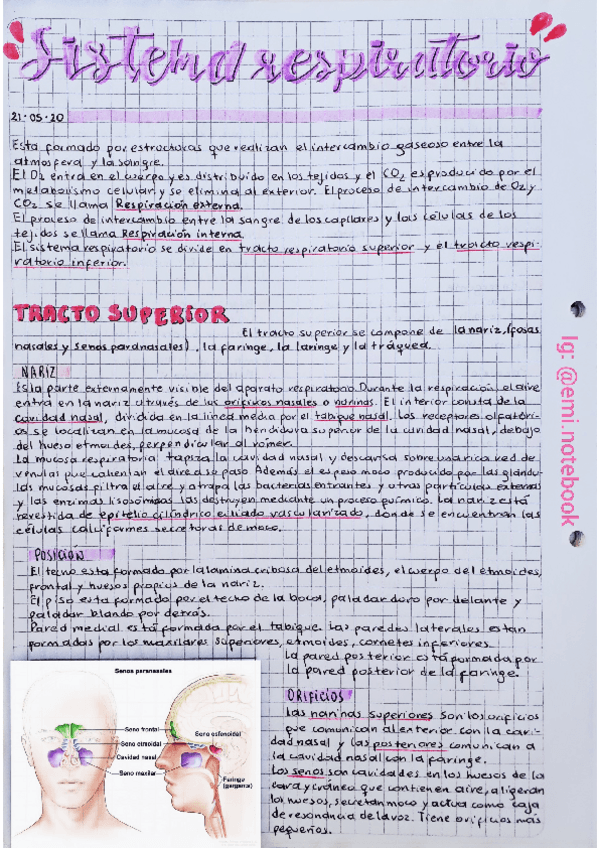 Sistema respiratorio
21·05·20
Esta formado por estructuras que realizan el intercambio gaseoso entre la
atmosfera y la sangre.
El O₂ entra en el cuerpo y es distribuido en los tejidos y el CO₂ es producido por el
metabolismo celular y se elimina al exterior. El proceso de intercambio de O₂ y
CO₂ se llama Respiración externa.
El proceso de intercambio entre la sangre de los capilares y las células de los
tejidos se llama Respiración interna.
El sistema respiratorio se divide en tracto respiratorio superior y el tracto respi-
ratorio inferior.
TRACTO SUPERIOR
El tracto superior se compone de la nariz, (fosas
nasales y senos paranasales), la faringe, la laringe y la tráquea.
NARIZ
Es la parte externamente visible del aparato respiratorio. Durante la respiración, el aire
entra en la nariz a través de los orificios nasales o narinas. El interior consta de la
cavidad nasal, dividida en la línea media por el tabique nasal. Los receptores olfatóri-
cos se localizan en la mucosa de la hendidura superior de la cavidad nasal, debajo
del hueso etmoides, perpendicular al vómer.
La mucosa respiratoria tapiza la cavidad nasal y descansa sobre una rica red de
venulas que calientan el aire a su paso. Además el espeso moco producido por las glándu-
las mucosas filtra el aire y atrapa las bacterias entrantes y otras particulas externas
y las enzimas lisosómicas las destruyen mediante un proceso químico. La nariz está
revestida de epitelio cilíndrico ciliado vascularizado, donde se encuentran las
células caliciformes secretoras de moco.
POSICIÓN
El techo esta formado por la lamina cribosa del etmoides, el cuerpo del etmoides,
frontal y huesos propios de la nariz.
El piso esta formado por el techo de la boca, paladar duro por delante y
paladar blando por detrás.
Pared medial está formada por el tabique. Las paredes laterales estan
formadas por los maxilares superiores, etmoides, cornetes inferiores.
La pared posterior está formada por
la pared posterior de la faringe.
ORIFICIOS
Las narinas superiores son los orificios
que comunican al exterior con la cavi-
dad nasal y las posteriores comunican a
la cavidad nasal con la faringe.
Los senos son cavidades en los huesos de la
cara y cráneo que contienen aire, aligeran
los huesos, secretan moco y actua como caja
de resonancia de la voz. Tiene orificios más
pequeños.
Senos paranasales
Seno frontal
Seno etmoidal
Cavidad nasal
Seno maxilar
Seno esfenoidal
Faringe
(garganta)
Ig: @emi.notebook